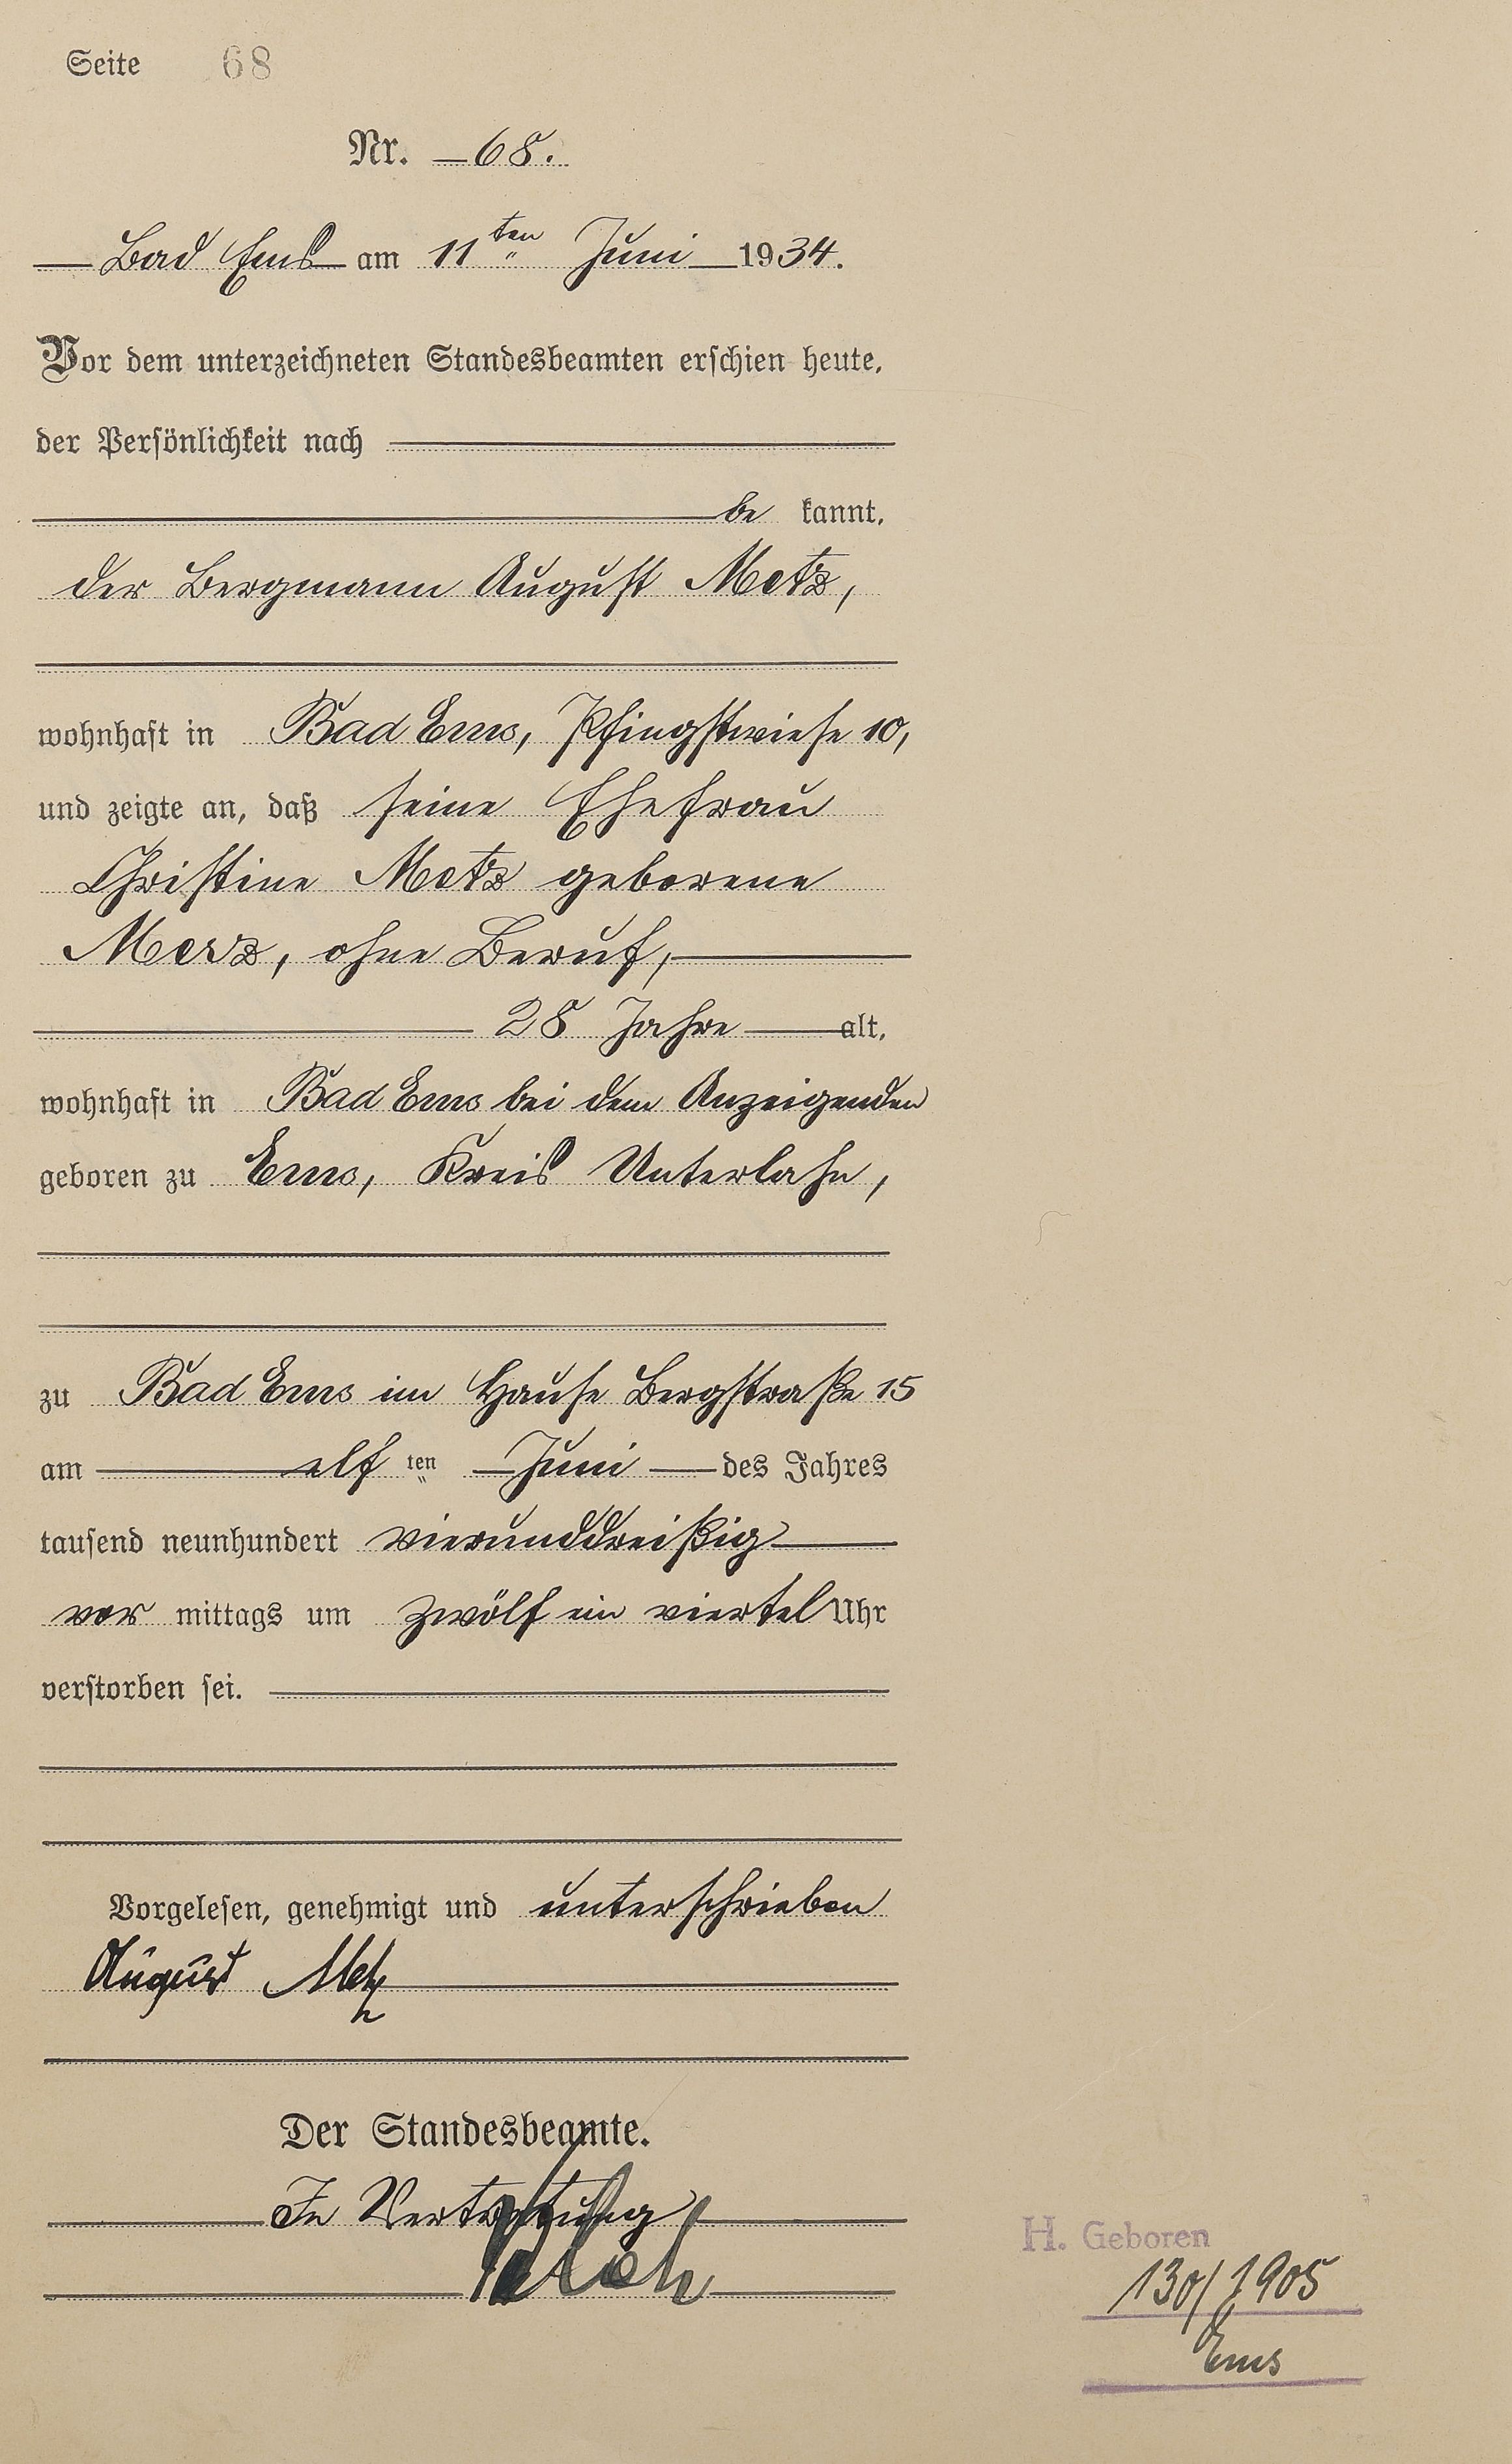 Seite 68
Nr. 68.
Bad Ems am 11ten Juni 1934.
Vor dem unterzeichneten Standesbeamten erschien heute,
der Persönlichkeit nach
be kannt,
der Bergmann August Metz,
wohnhaft in Bad Ems, Pfingstwiese 10,
und zeigte an, daß seine Ehefrau
Christine Metz geborene
Merz, ohne Beruf,
28 Jahre alt,
wohnhaft in Bad Ems bei dem Anzeigenden
geboren zu Ems, Kreis Unterlahn,
zu Bad Ems im Hause Bergstraße 15
am elf ten Juni des Jahres
tausend neunhundert vierunddreißig
vor mittags um zwölf ein viertel Uhr
verstorben sei.
Vorgelesen, genehmigt und unterschrieben
August Metz
Der Standesbeamte.
In Vertretung
H. Geboren
130/1905
Ems